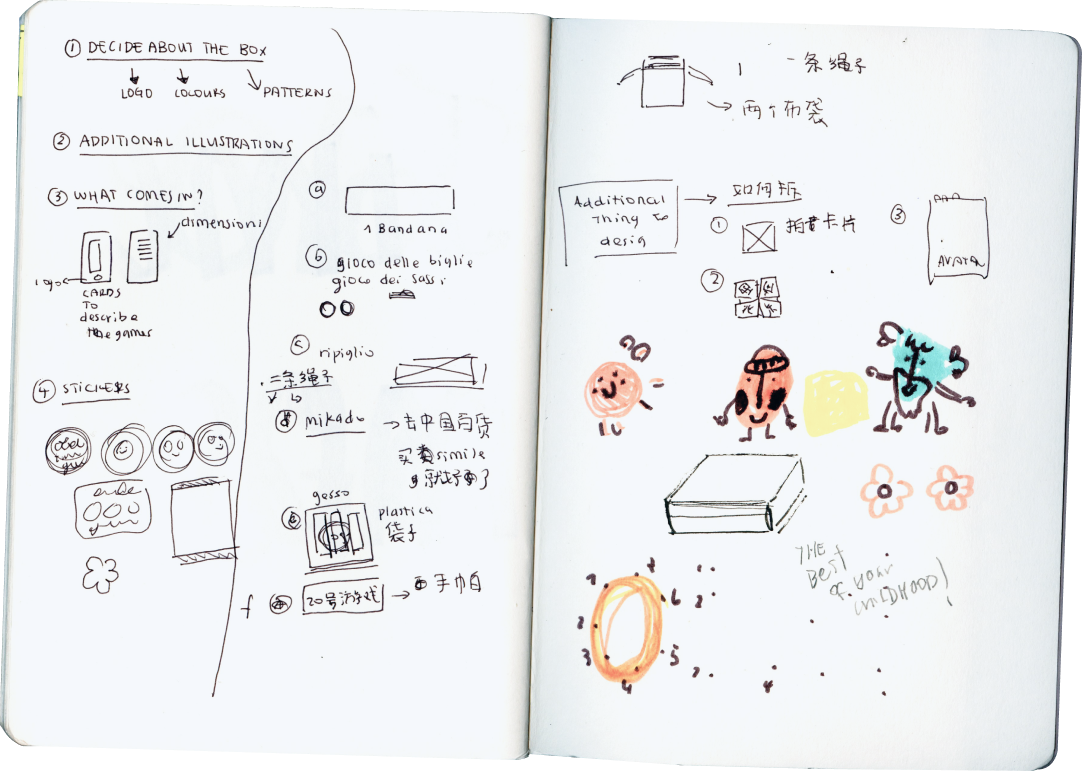 ① DECIDE ABOUT THE BOX
LOGO COLOURS PATTERNS
② ADDITIONAL ILLUSTRATIONS
③ WHAT COMES IN?
dimensioni
logo
CARDS
TO
describe
the games
④ STICKERS
a
1 Bandana
b gioco delle biglie
gioco dei sassi
c ripiglio
二条绳子
d mikado → 去中国百货
买 simile
就好了
e gesso
plastica
袋子
f 20号游戏 → 手帕
1 一条绳子
→ 两个布袋
Additional
Thing to
desig
→ 如何拆
① 拍卖卡片
②
③
AVATAR
THE
BEST
OF your
CHILDHOOD!
1
2
3
4
5
6
7
1
2
4